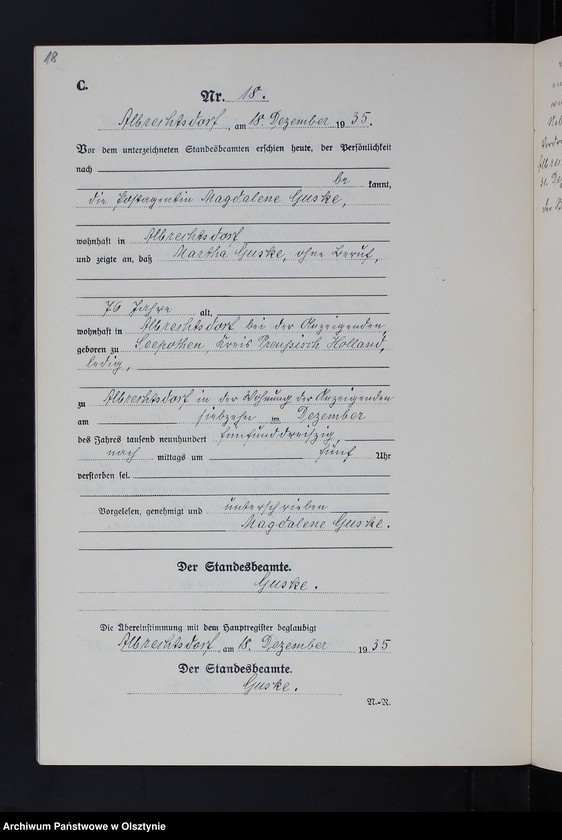 18
C.
Nr. 18.
Albrechtsdorf, am 18. Dezember 1935.
Vor dem unterzeichneten Standesbeamten erschien heute, der Persönlichkeit
nach
be kannt,
die Postagentin Magdalene Guske,
wohnhaft in Albrechtsdorf
und zeigte an, daß Martha Guske, ohne Beruf,
76 Jahre alt,
wohnhaft in Albrechtsdorf bei der Anzeigenden,
geboren zu Seepothen, Kreis Preußisch Holland,
ledig,
zu Albrechtsdorf in der Wohnung der Anzeigenden
am siebzehn ten Dezember
des Jahres tausend neunhundert fünfunddreißig,
nach mittags um fünf Uhr
verstorben sei.
Vorgelesen, genehmigt und unterschrieben
Magdalene Guske.
Der Standesbeamte.
Guske.
Die Übereinstimmung mit dem Hauptregister beglaubigt
Albrechtsdorf, am 18. Dezember 1935
Der Standesbeamte.
Guske.
N.-R.
Archiwum Państwowe w Olsztynie